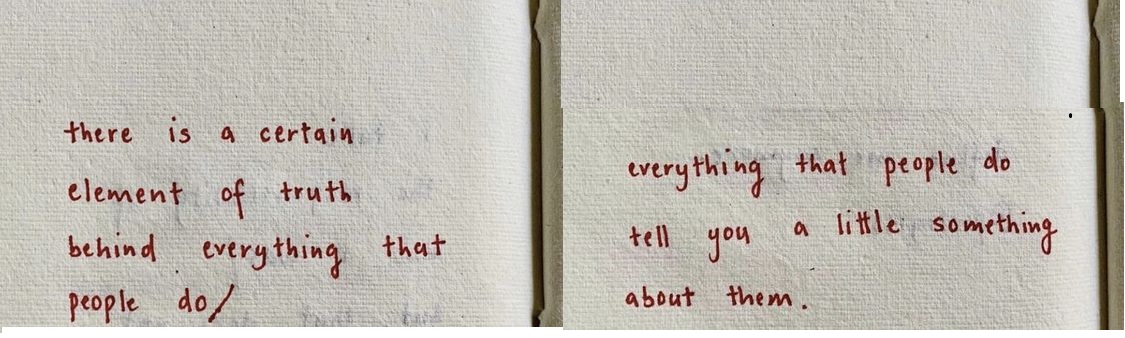 there is a certain
element of truth
behind everything that
people do/
everything that people do
tell you a little something
about them.